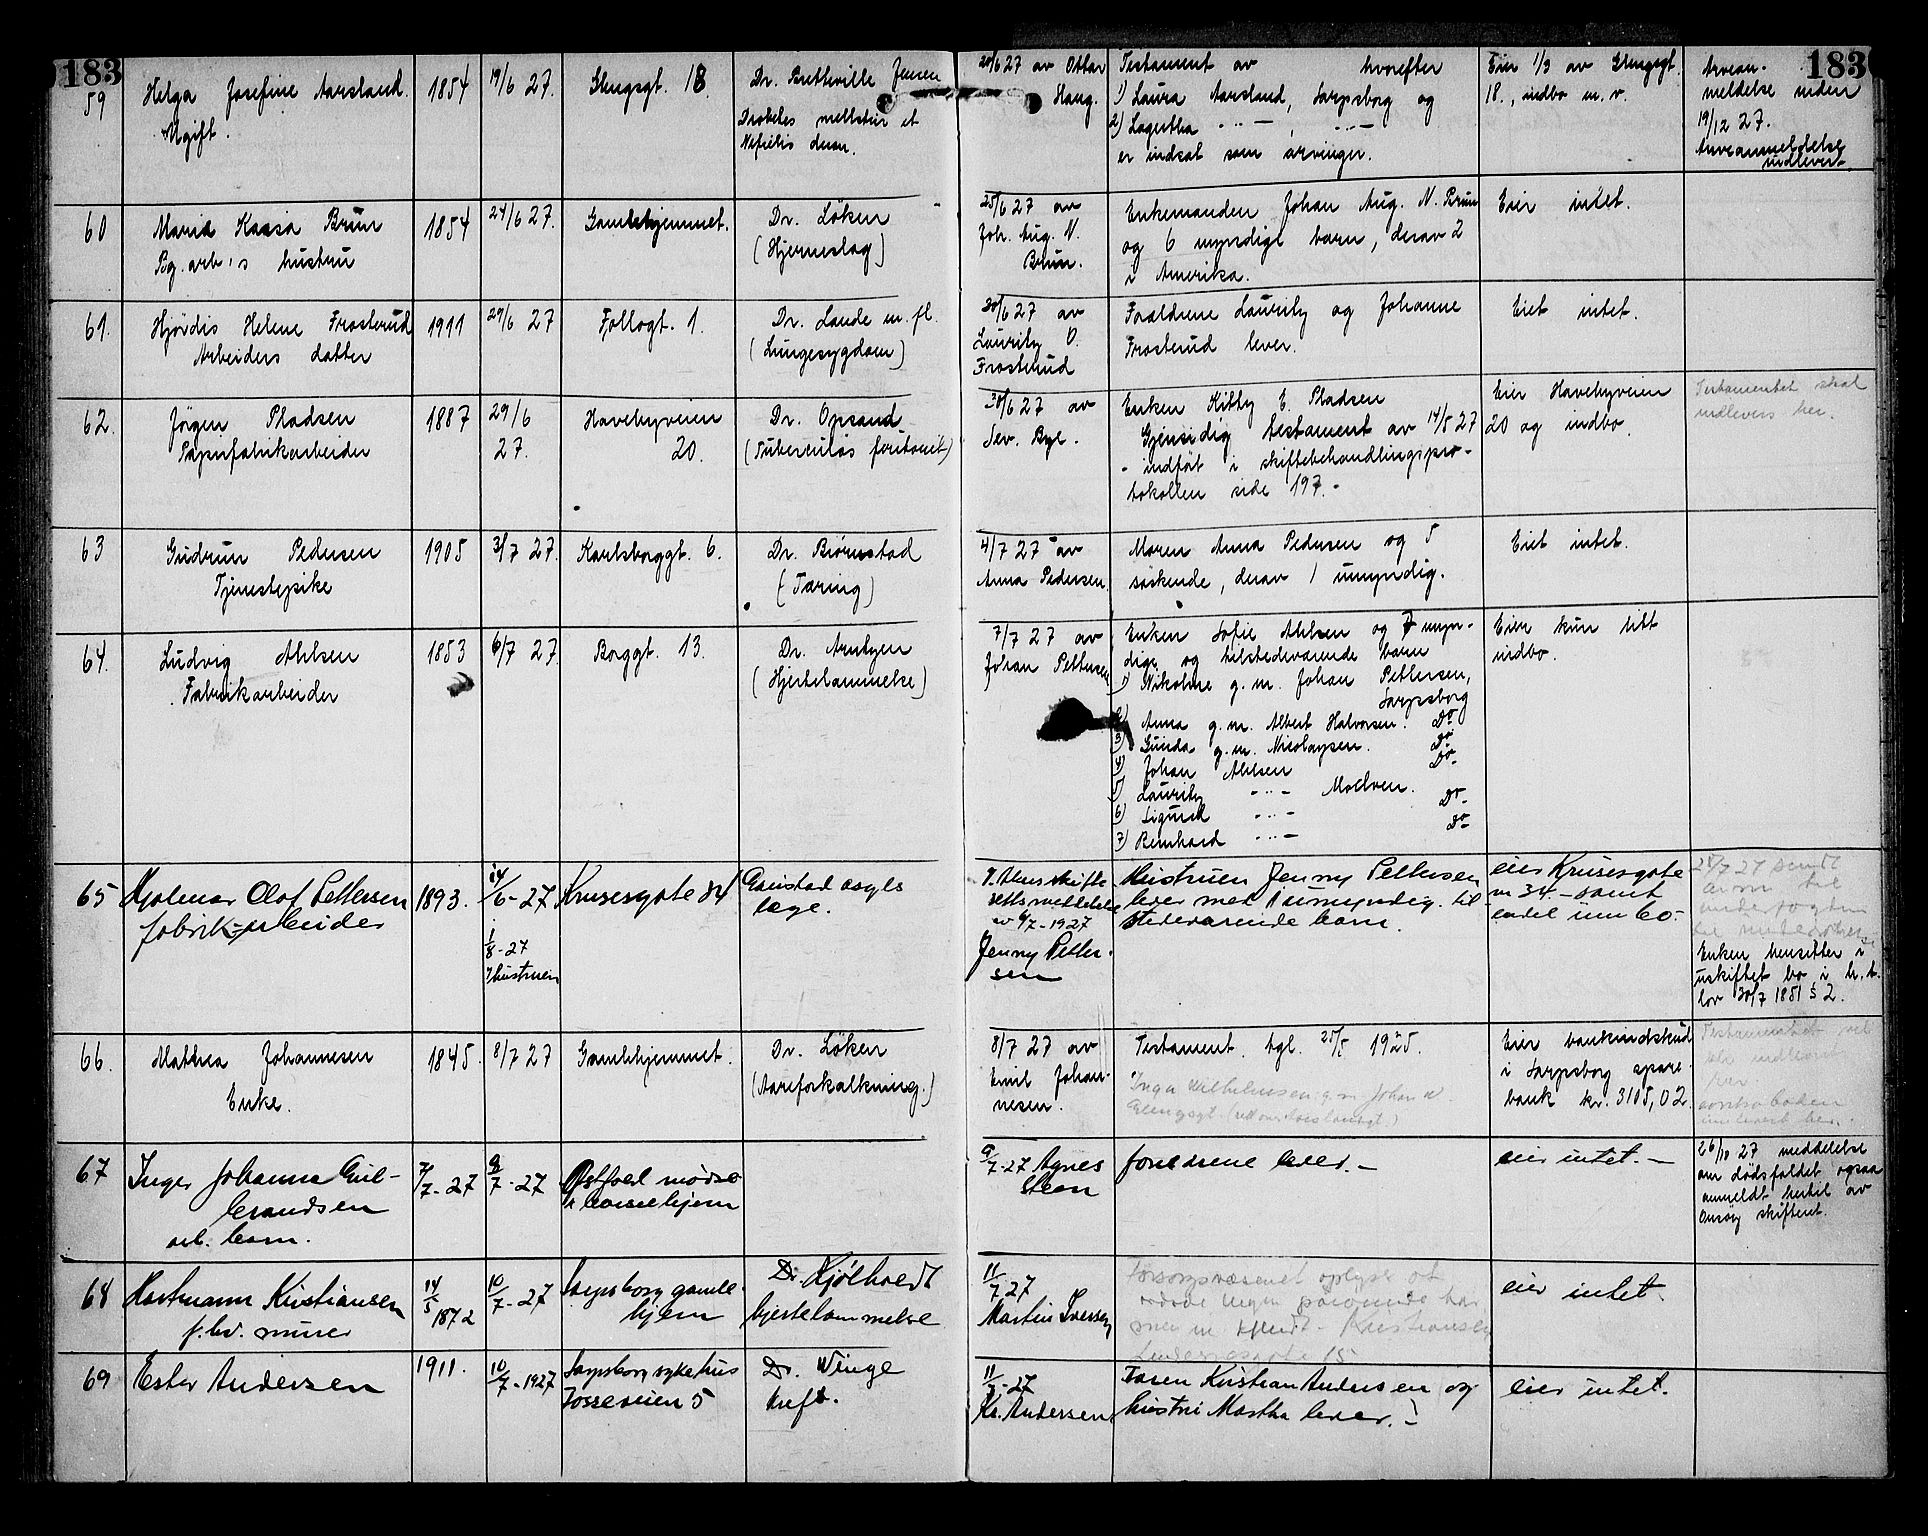 183
183
59
Helga Josefine Aarsland.
Ugift.
1854
19/6 27.
Glengsgt. 18.
Dr. Bretteville Jensen
Diabetes mellitus et
20/6 27 av Ottar
Haug.
Testament av hvorefter
1) Laura Aarsland, Sarpsborg og
2) Lagertha -"-, -"-
er indsat som arvinger.
Eier 1/3 av Glengsgt.
18., indbo m. v.
Arvean-
meldelse inden
19/12 27.
Arveanmeldelse
indlevert
60
Maria Kaisa Brun
Bg. arb's hustru
1854
24/6 27.
Gamlehjemmet.
Dr. Löken
(Hjerneslag)
25/6 27 av
Joh. Aug. N.
Brun.
Enkemanden Johan Aug. N. Brun
og 6 myndige barn, derav 2
i Amerika.
Eier intet.
61.
Hjördis Helene Frosterud
Arbeiders datter
1911
29/6 27
Follogt. 1.
Dr. Lande m. fl.
(Lungesygdom)
30/6 27 av
Lauritz O.
Frosterud
Forældrene Lauritz og Johanne
Frosterud lever.
Eiet intet.
62.
Jörgen Pladsen
Papirfabrikarbeider
1887
29/6
27.
Havebyveien
20.
Dr. Opsand
(Tuberculös peritonit)
30/6 27 av
Sev. Bye.
Enken Kitty E. Pladsen
Gjensidig testament av 14/5 27
- indfört i skiftebehandlingspro-
tokollen side 197.-
Eier Havebyveien
20 og indbo.
Testamentet skal
indlevers her.
63
Gudrun Pedersen
Tjenestepike
1905
3/7 27.
Karlsborggt. 6.
Dr. Björnstad
(Tæring)
4/7 27 av
Anna Pedersen
Moren Anna Pedersen og 5
söskende, derav 1 umyndig.
Eiet intet.
64.
Ludvig Ahlsen
Fabrikarbeider
1853
6/7 27.
Borggt. 13.
Dr. Arntzen
(Hjertelammelse)
7/7 27 av
Johan Pettersen
Enken Sofie Ahlsen og 7 myn-
dige og tilstedeværende barn
1) Nikoline g.m. Johan Pettersen,
Sarpsborg
2) Anna g.m. Albert Halvorsen. Do
3) Gunda g.m. Nicolaysen. Do
4) Johan Ahlsen Do
5) Lauritz -"- Moelven.
6) Sigurd -"- Do
7) Reinhard -"- Do
Eier kun litt
indbo.
65
Hjalmar Olaf Pettersen
fabrik-arbeider
1893.
24/6-27
1/8-27
Hustruen
Krusesgate 34
Gaustad asyls
læge.
av 4/7-1927
Jenny Petter-
sen
Hustruen Jenny Pettersen
lever med 1 umyndig. til
stedeværende barn.
eier Krusesgate
nr 34 - samt
endel innbo.-
Enken hensitter i
uskiftet bo i h. t.
lov 30/7 1851 § 2.
66.
Mathea Johannesen
Enke.
1845.
8/7 27
Gamlehjemmet.
Dr. Löken
(Aareforkalkning.)
8/7 27 av
Emil Johan-
nesen.
Testament. tgl. 25/5 1925.
Inga Wilhelmsen g. m Johan W.
Eier bankindskud
i Sarpsborg spare-
bank kr. 3105,02
Testamentet
67
Inger Johanne Gul-
brandsen
arb. barn.
7/7-27
9/7-27
Östfold mødre
& barnehjem
9/7-27 Agnes
Steen
foreldrene lever.-
eier intet.-
26/10 27 meddelelse
om dödsfaldet ogsaa
anmeldt hertil av
Onsöy skifteret.
68
Hartmann Kristiansen
f. hv. murer
14/5 1872
10/7-27
Sarpsborg gamle-
hjem
Dr. Kjölholdt
hjertelammelse
11/7 27
Martin Iversen
Forsorgsvæsenet oplyser at
eier intet.
69
Ester Andersen
1911.
10/7-1927
Sarpsborg sykehus
Fosseveien 5
Dr. Winge
kreft.
11/7-27
Kr. Andersen
Faren Kristian Andersen og
hustru Martha lever.-
eier intet.